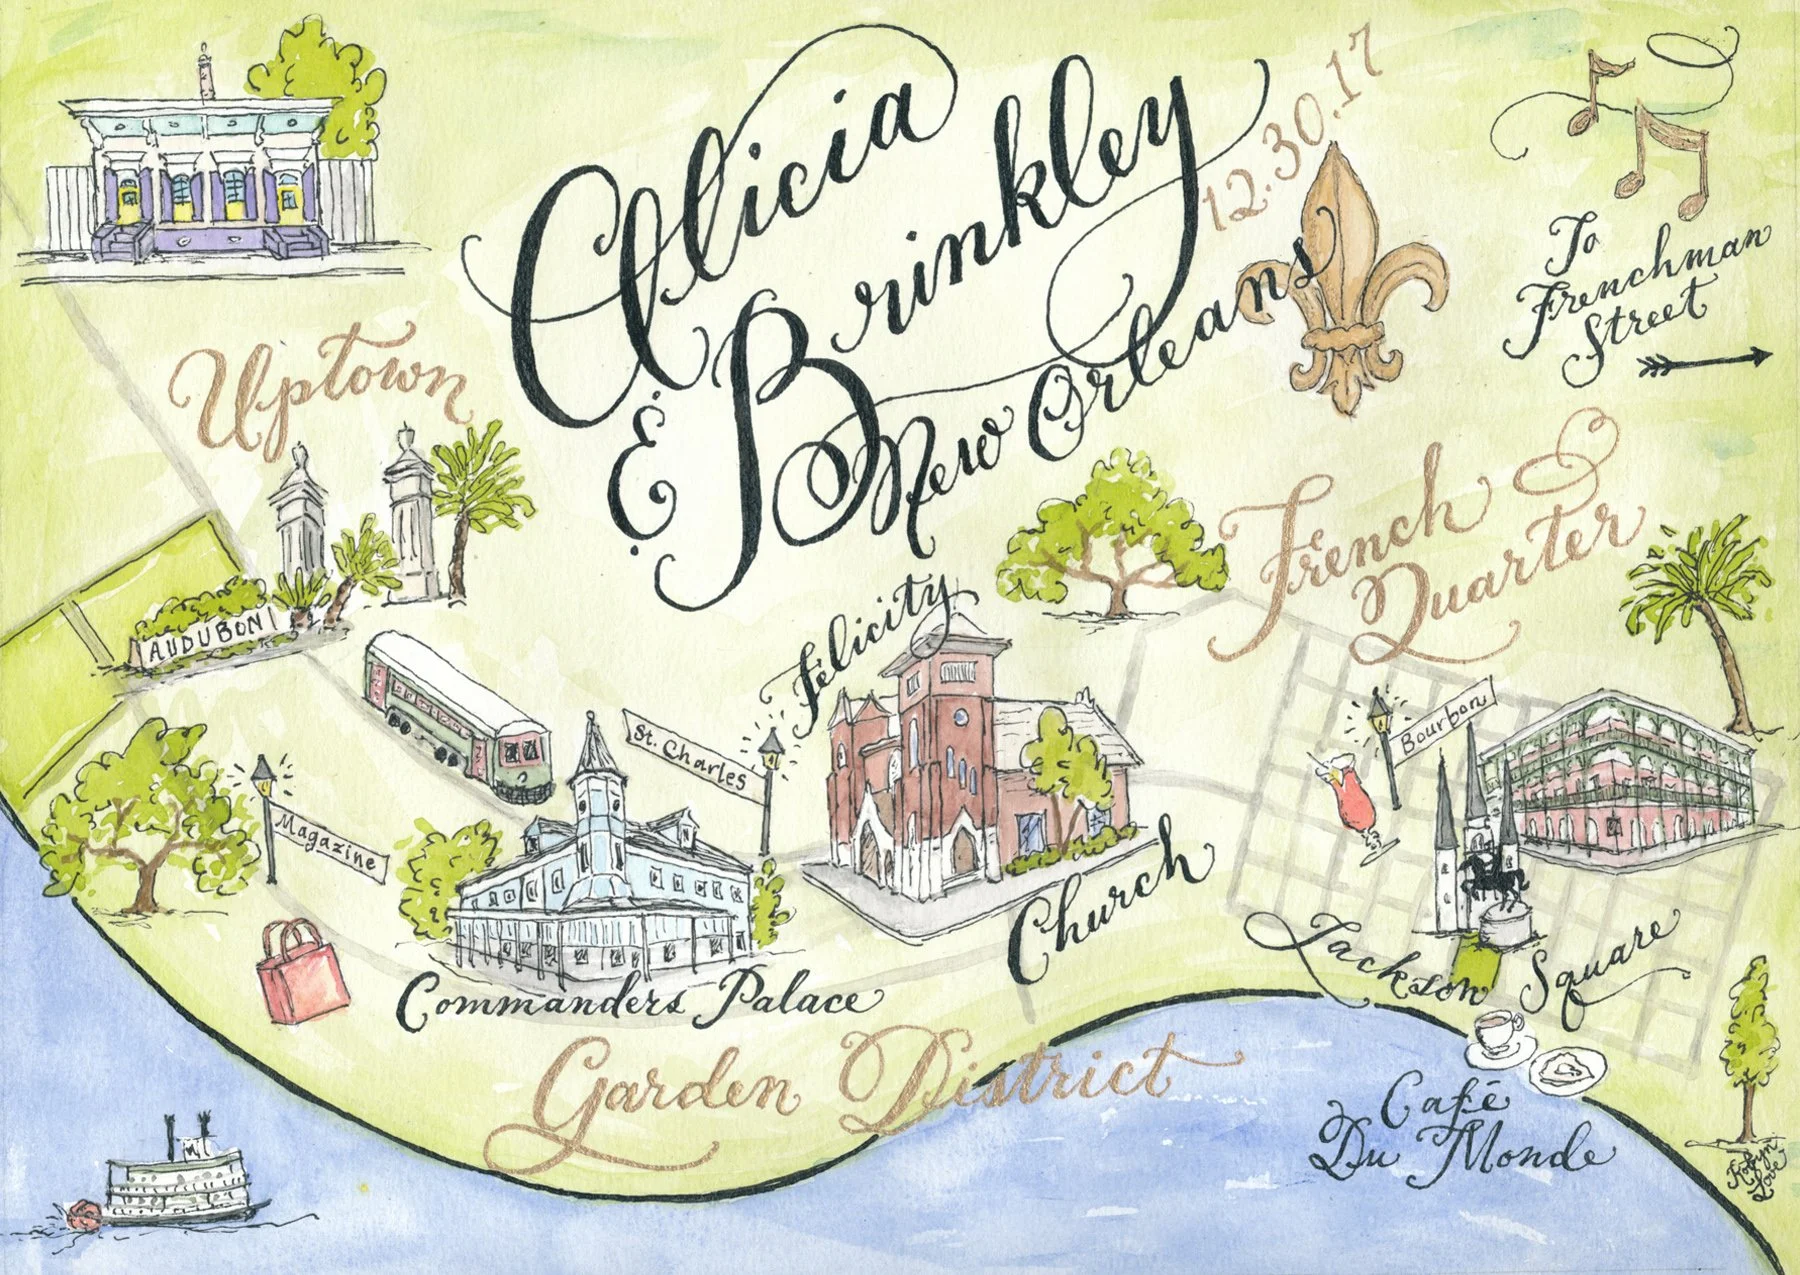 Alicia
& Brinkley
12.30.17
New Orleans
To
Frenchman
Street
Uptown
French
Quarter
AUDUBON
Felicity
Church
St. Charles
Bourbon
Magazine
Commanders Palace
Jackson Square
Garden District
Café
Du Monde
Robyn
Love